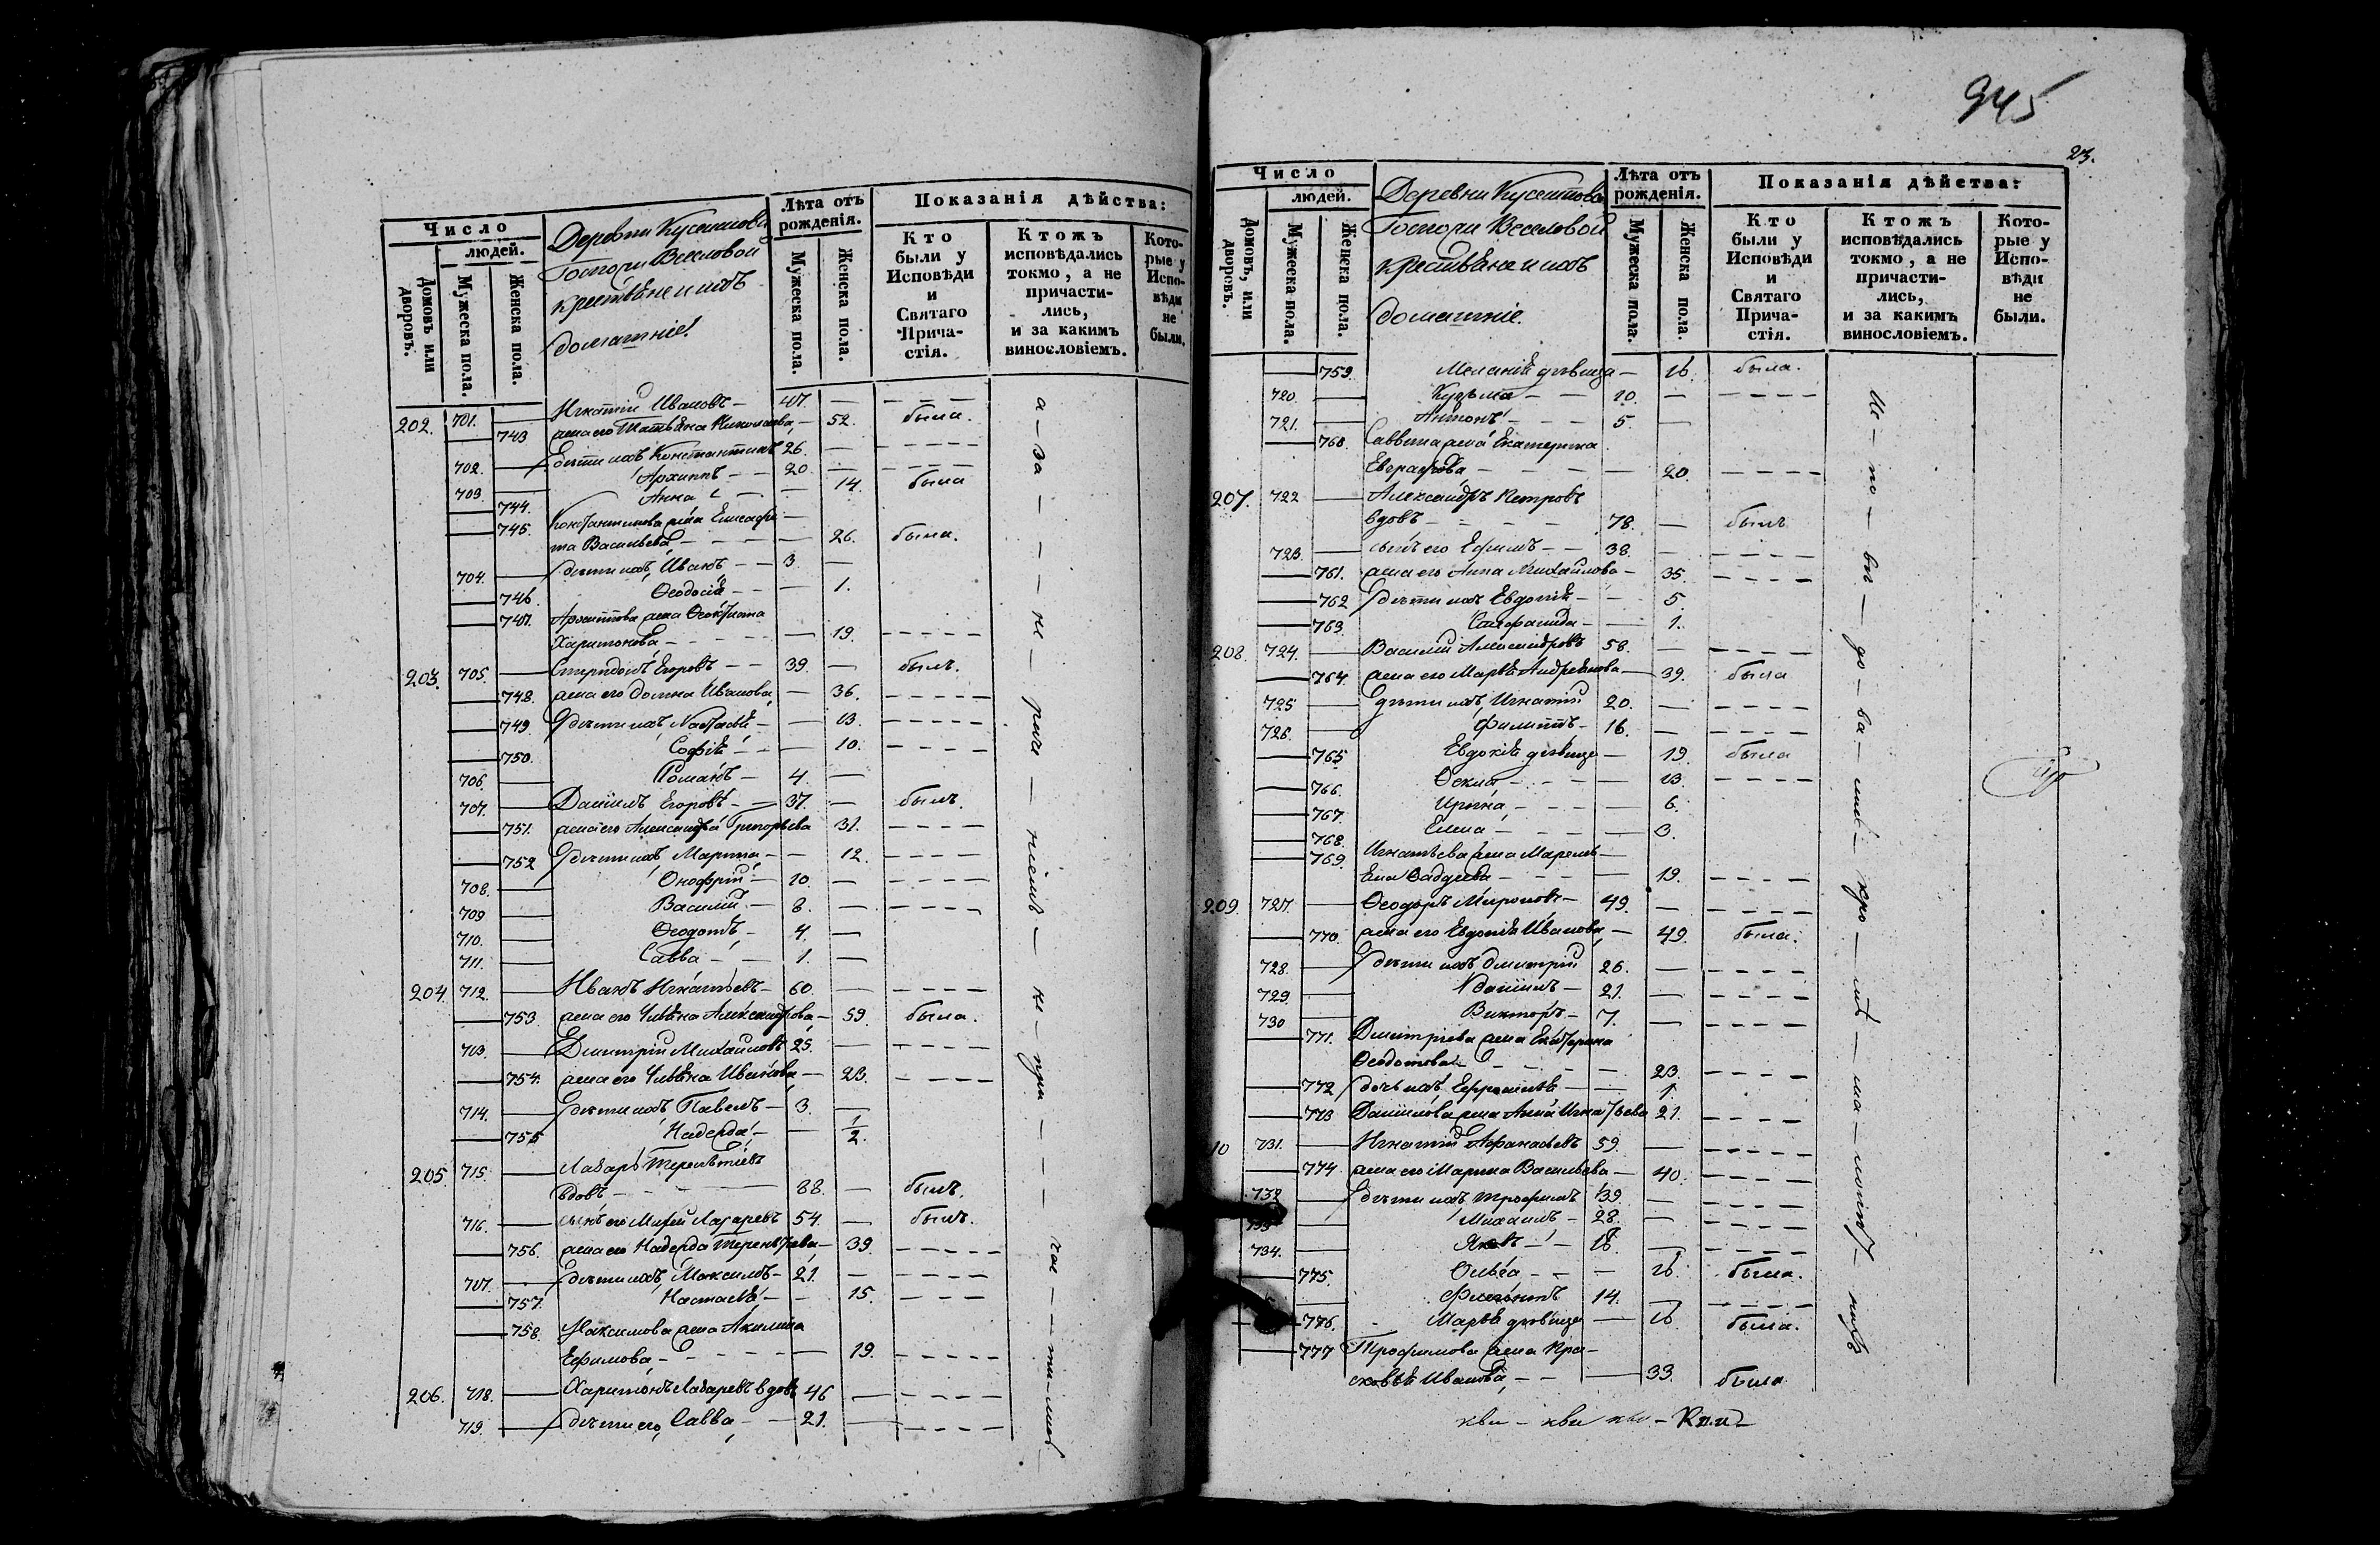 945
23.
Число
людей.
Домовъ или дворовъ.
Мужеска пола.
Женска пола.
Деревни
Госпожи Веселовой
крестьяне и ихъ
домашніе.
Лѣта отъ рожденія.
Мужеска пола.
Женска пола.
Показанія дѣйства:
Кто были у Исповѣди и Святаго Причастія.
Ктожъ исповѣдались токмо, а не причастились, и за какимъ винословіемъ.
Которые у Исповѣди не были.
202. 701. — Игнатій Ивановъ — 47. —
743 жена его Татьяна Николаева, — 52. была.
702. — дѣти ихъ Константинъ 26. —
703. — Архиппъ — 20. —
744. Анна — 14. была
745. Константинова жена Елисаве-
та Васильева, — 26. была.
704. — дѣти ихъ, Иванъ — 3. —
746. Ѳеодосія — 1.
747. Архиппова жена Ѳеоктиста
Харитонова — 19.
203. 705. — Спиридонъ Егоровъ — 39. — былъ.
748. жена его Домна Иванова, — 36.
749. дѣти ихъ, Настасья — 13.
750. Софія — 10.
706. — Романъ — 4. —
707. — Даніилъ Егоровъ — 37. — былъ.
751. жена его Александра Григорьева 31.
752 дѣти ихъ, Марина — 12.
708. — Онофрій — 10. —
709 — Василій — 8. —
710. — Ѳеодотъ — 4. —
711. — Савва — 1. —
204. 712. — Иванъ Игнатьевъ — 60. —
753. жена его Ульяна Александрова — 59. была.
713. — Дмитрій Михаиловъ 25. —
754. жена его Ульяна Иванова — 23.
714. — дѣти ихъ Павелъ — 3. —
755 Надежда — 1/2.
205. 715. — Лазарь Терентьевъ
вдовъ — 88. — былъ.
716. — сынъ его Лазаревъ 54. — былъ.
756. жена его Надежда Терентьева — 39.
717. — дѣти ихъ, Максимъ — 21. —
757. Настасья — 15.
758. Максимова жена Акилина
Ефимова — 19.
206. 718. — Харитонъ Лазаревъ вдовъ 46 —
719. — дѣти его, Савва, — 21. —
Число
людей.
Домовъ, или дворовъ.
Мужеска пола.
Женска пола.
Деревни
Госпожи Веселовой
крестьяне и ихъ
домашніе.
Лѣта отъ рожденія.
Мужеска пола.
Женска пола.
Показанія дѣйства:
Кто были у Исповѣди и Святаго Причастія.
Ктожъ исповѣдались токмо, а не причастились, и за какимъ винословіемъ.
Которые у Исповѣди не были.
759. Меланія дѣвица — 16. была.
720. — Кузьма — 10. —
721. — Антонъ — 5. —
760. Саввина жена Екатерина
Евграфова — 20.
207. 722 — Александръ Петровъ
вдовъ — 78. — былъ
723. — сынъ его Ефимъ — 38. —
761. жена его Анна Михаилова — 35.
762 дѣти ихъ Евдокія — 5.
763. — 1.
208. 724. — Василій Александровъ 58. —
764. жена его Марья Андреянова — 39. была
725 — дѣти ихъ, Игнатій 20. —
726. — Филиппъ — 16. —
765 Евдокія дѣвица — 19. была
766. Ѳекла — 13.
767. Ирина — 6.
768. Елена — 3.
769. Игнатьева жена
Ѳаддеева — 19.
209. 727. — Ѳеодоръ Мироновъ — 49. —
770. жена его Евдокія Иванова, — 49. была.
728. — дѣти ихъ Дмитрій 26. —
729. — Даніилъ — 21. —
730 — Викторъ — 7. —
771. Дмитріева жена Екатерина
Ѳеодотова — 23.
772 дочь ихъ Ефросинія — 1.
773 Даніилова жена Анна Игнатьева 21.
10 731. — Игнатій Афанасьевъ 59. —
774. жена его Марина Васильева — 40.
732 — дѣти ихъ Трофимъ 39. —
733 — Михаилъ — 28. —
734. — Яковъ — 18. —
775. Ольга — 16. была.
14. —
776. Марья дѣвица — 16 была.
777 Трофимова жена Пра-
сковья Иванова, — 33. была